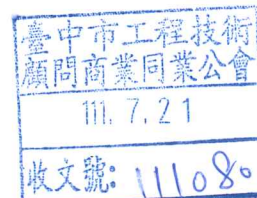 臺中市工程技術
顧問商業同業公會
111. 7. 21
收文號: 111080